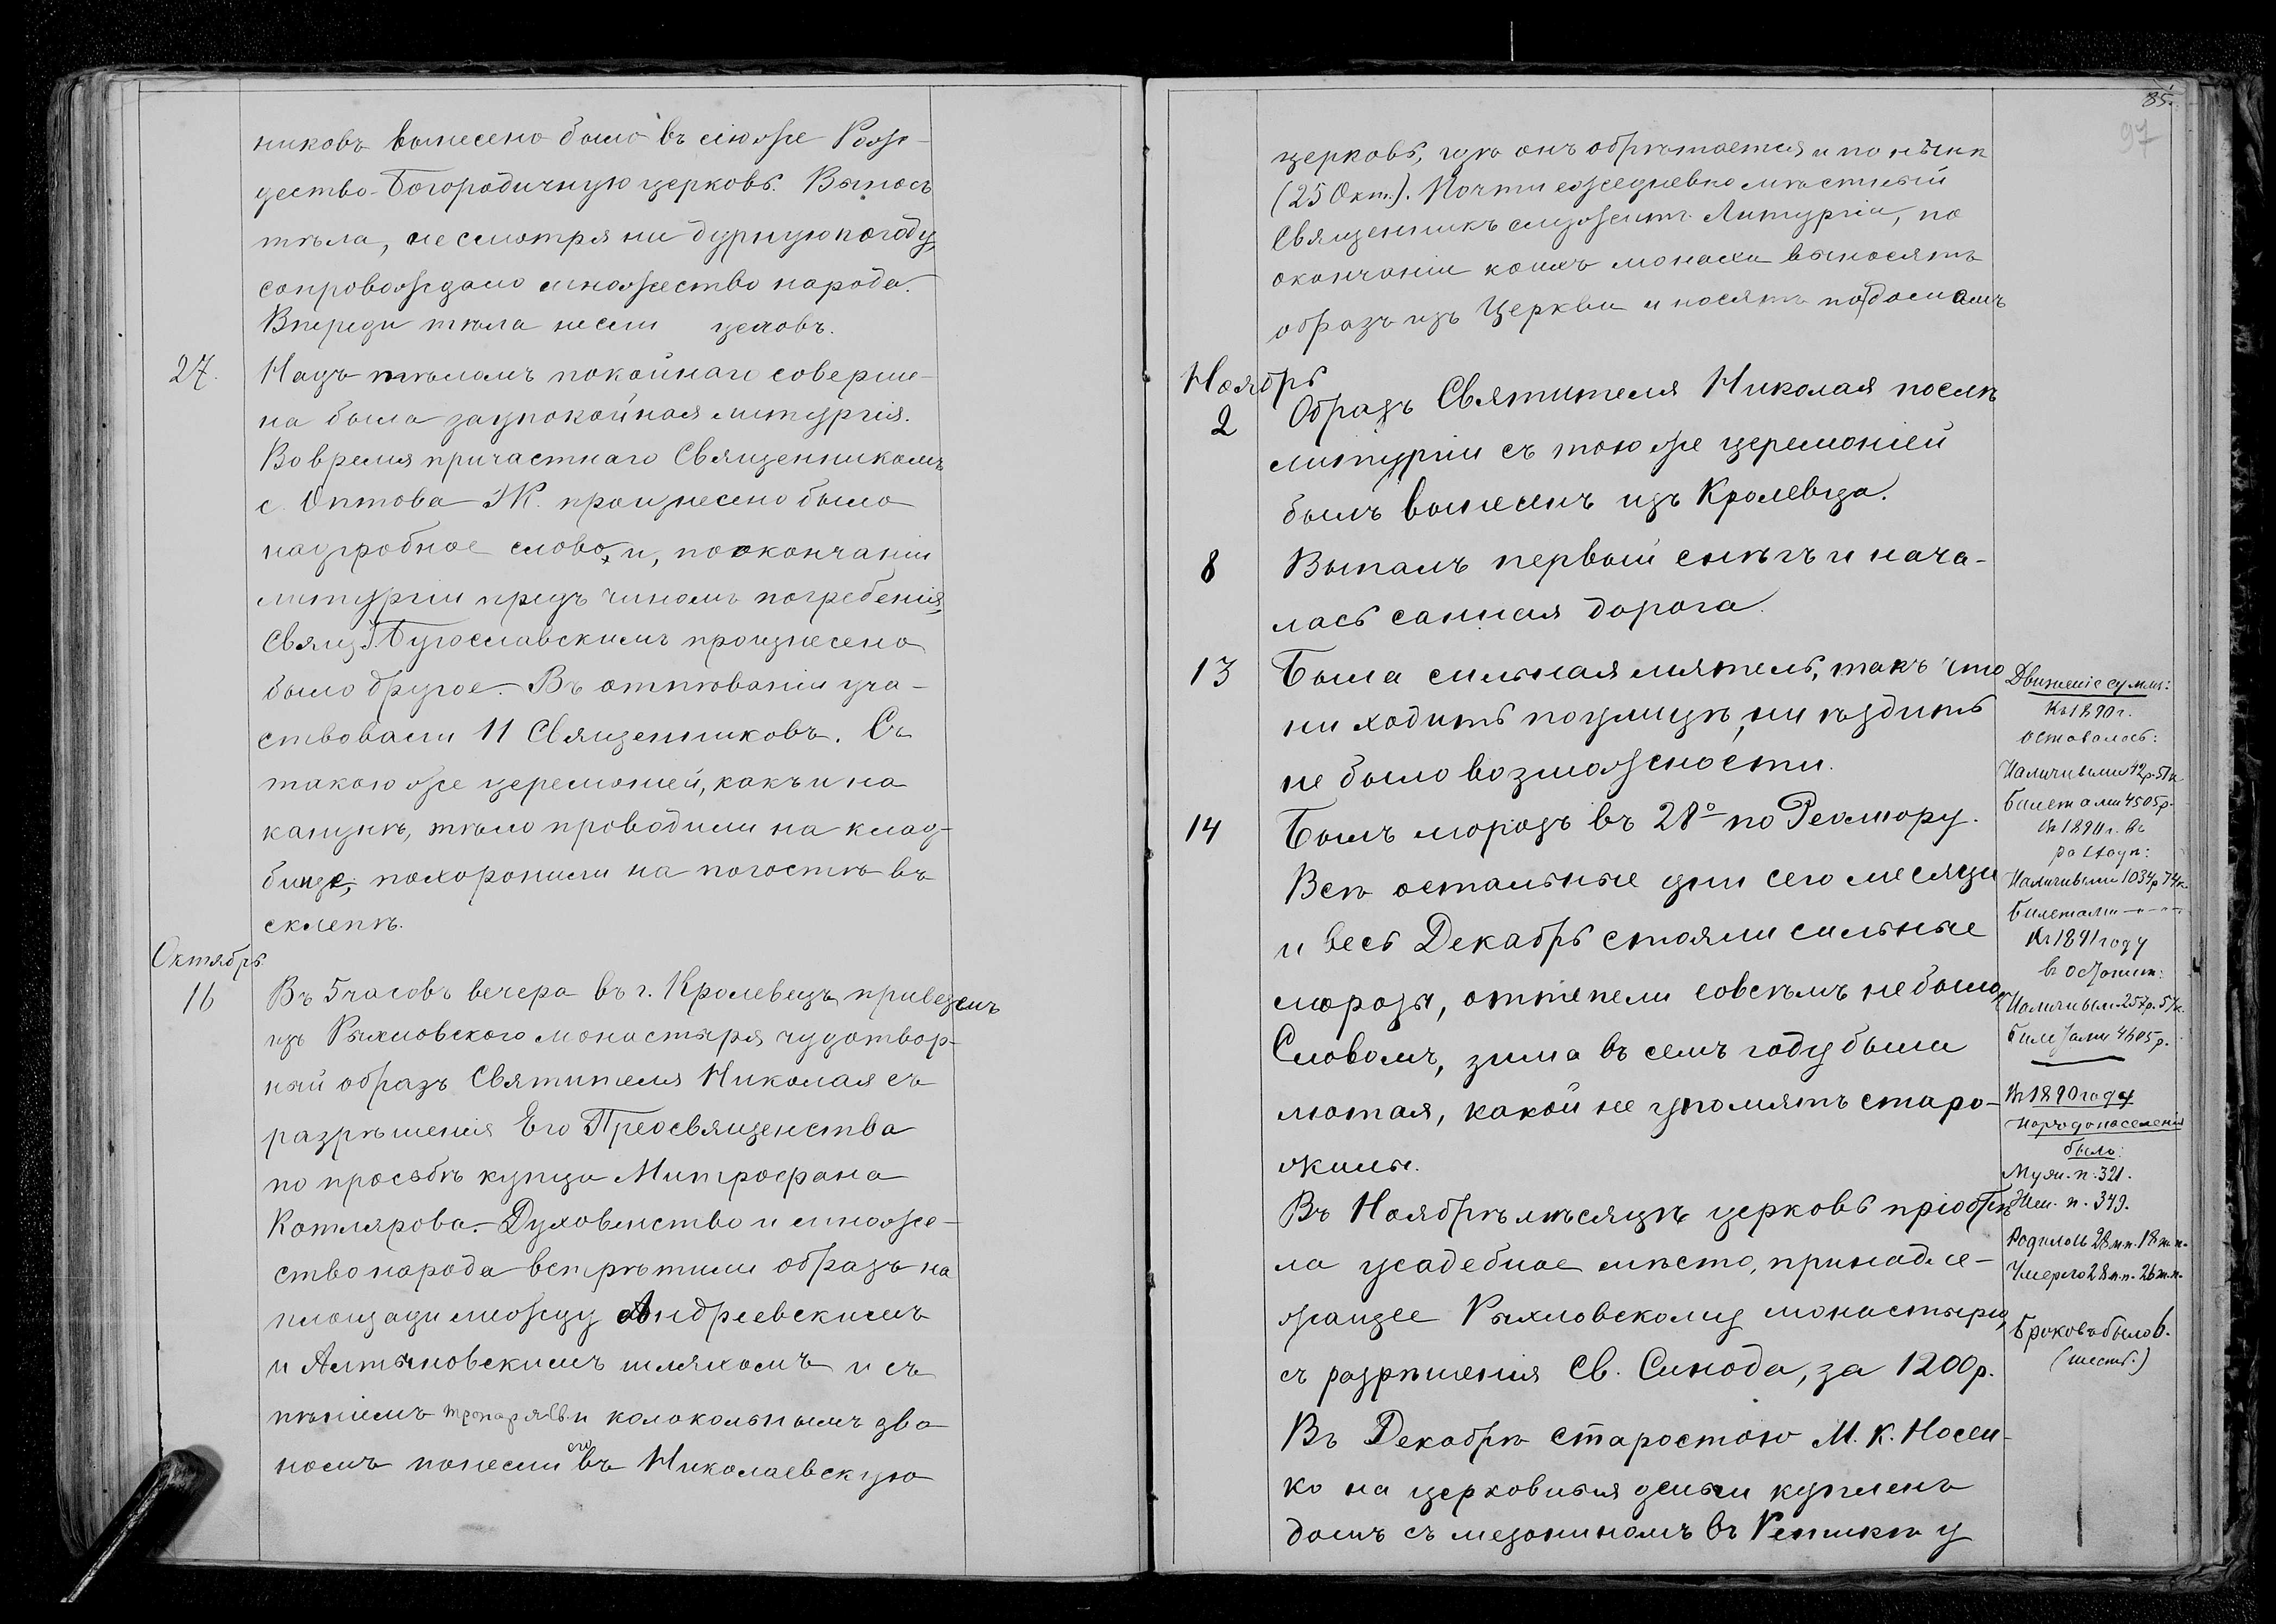 никовъ вынесено было въ сію же Рож-
дество-Богородичную церковь. Выносъ
тѣла, не смотря ни дурную погоду,
сопровождало множество народа.
Впереди тѣла несли цеховъ.
27. Надъ тѣломъ покойнаго соверше-
на была заупокойная литургія.
Во время причастнаго Священникомъ
с. Оптова Ж. произнесено было
надгробное слово, и, по окончаніи
литургіи предъ чиномъ погребенія,
Свящ. Бугославскимъ произнесено
было другое. Въ отпѣваніи уча-
ствовали 11 Священниковъ. Съ
такою же церемоніей, какъ и на
канунѣ, тѣло проводили на клад-
бище, похоронили на погостѣ въ
склепѣ.
Октябрь.
16 Въ 5 часовъ вечера въ г. Кролевецъ привезенъ
изъ Рыхловского монастыря чудотвор-
ный образъ Святителя Николая съ
разрѣшенія Его Преосвященства
по просьбѣ купца Митрофана
Котлярова. Духовенство и множе-
ство народа встрѣтили образъ на
площади между Андреевскимъ
и Алтыновскимъ шляхомъ и съ
пѣніемъ тропаря Св. и колокольнымъ зво
номъ понесли его въ Николаевскую
85.
97
церковь, гдѣ онъ обрѣтается и по нынѣ
(25 Окт.). Почти ежедневно мѣстный
Священникъ служитъ Литургіи, по
окончаніи коихъ монахи выносятъ
образъ изъ Церкви и носятъ по домамъ
Ноябрь
2 Образъ Святителя Николая послѣ
литургіи съ тою же церемоніей
былъ вынесенъ изъ Кролевца.
8 Выпалъ первый снѣгъ и нача-
лась санная дорога.
13 Была сильная мятель, такъ что
ни ходить по улицѣ, ни ѣздить
не было возможности.
14 Былъ морозъ въ 28° по Реомюру.
Всѣ остальные дни сего месяца
и весь Декабрь стояли сильные
морозы, оттепели совсѣмъ не было.
Словомъ, зима въ семъ году была
лютая, какой не упомнятъ старо-
жилы.
Въ Ноябрѣ мѣсяцѣ церковь пріобрѣ
ла усадебное мѣсто, принадле-
жащее Рыхловскому монастырю,
съ разрѣшенія Св. Синода, за 1200 р.
Въ Декабрѣ старостою М. К. Носен-
ко на церковныя деньги купленъ
домъ съ мезониномъ въ Ретикѣ у
Движеніе суммъ:
Къ 1890 г.
оставалось:
Наличными 42 р. 51 к.
Билетами 4505 р.
Въ 1890 г. въ
расходѣ:
Наличными 1034 р 74 к.
Билетами - - - -
Къ 1891 году
въ остаткѣ:
Наличным. 257 р. 57 к.
Билетами 4605 р.
Въ 1890 году
Народонаселенія
было:
Муж. п. 321.
Жен. п. 349.
Родилось 28 м.п. 18 ж.п.
Умерло 28 м.п. 26 ж.п.
Браковъ было 6.
(шесть.)